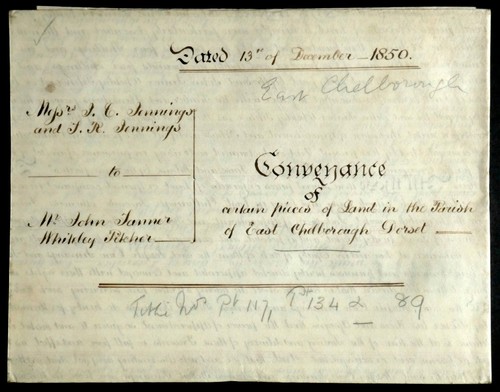 Dated 13th of December 1850.
East Chelborough
Messrs J. C. Jennings
and J. R. Jennings
to
Mr John Tanner
Whiteley Pitcher
Conveyance
of
certain pieces of Land in the Parish
of East Chelborough Dorset
Tithe Nos Pt 117, Pt 134 2 89